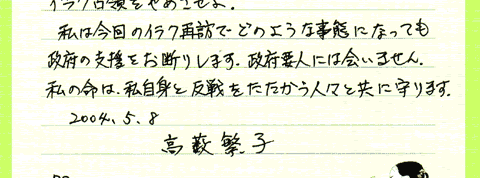 イラク占領をやめさせよ.
私は今回のイラク再訪でどのような事態になっても
政府の支援をお断りします。政府要人には会いません.
私の命は、私自身と反戦をたたかう人々と共に守ります.
2004. 5. 8
高薮繁子